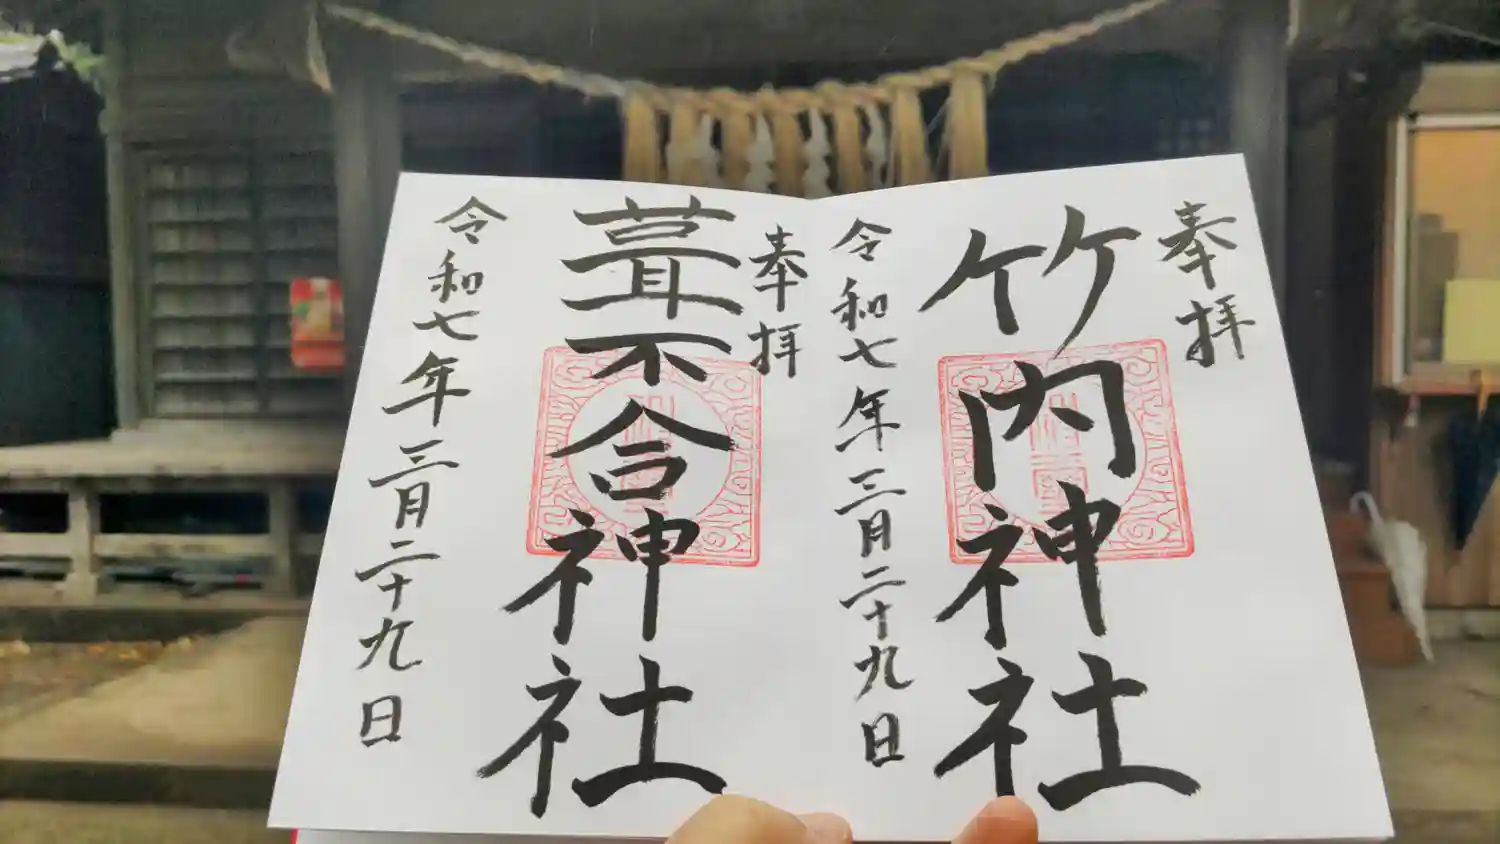 奉拝
竹内神社
令和七年三月二十九日
奉拝
葺不合神社
令和七年三月二十九日